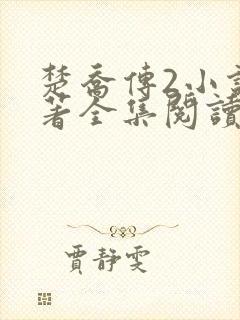 楚喬傳2小說
著全集閱讀
賈靜雯